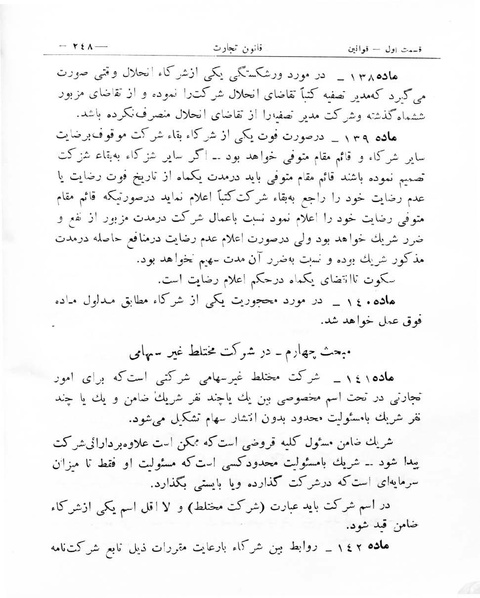 قسمت اول – قوانین قانون تجارت – ۲٤۸ –
ماده ۱۳۸ – در مورد ورشکستگی یکی از شرکاء انحلال وقتی صورت
می‌گیرد که مدیر تصفیه کتباً تقاضای انحلال شرکت را نموده و از تقاضای مزبور
ششماه گذشته و شرکت مدیر تصفیه را از تقاضای انحلال منصرف نکرده باشد.
ماده ۱۳۹ – در صورت فوت یکی از شرکاء بقاء شرکت موقوف برضایت
سایر شرکاء و قائم مقام متوفی خواهد بود – اگر سایر شرکاء به بقاء شرکت
تصمیم نموده باشند قائم مقام متوفی باید در مدت یکماه از تاریخ فوت رضایت یا
عدم رضایت خود را راجع به بقاء شرکت کتباً اعلام نماید در صورتیکه قائم مقام
متوفی رضایت خود را اعلام نمود نسبت باعمال شرکت در مدت مزبور از نفع و
ضرر شریك خواهد بود ولی در صورت اعلام عدم رضایت در منافع حاصله در مدت
مذکور شریك بوده و نسبت به ضرر آن مدت سهیم نخواهد بود.
سکوت تا انقضای یکماه در حکم اعلام رضایت است.
ماده ۱٤۰ – در مورد محجوریت یکی از شرکاء مطابق مدلول ماده
فوق عمل خواهد شد.
مبحث چهارم – در شرکت مختلط غیر سهامی
ماده ۱٤۱ – شرکت مختلط غیر سهامی شرکتی است که برای امور
تجارتی در تحت اسم مخصوصی بین یك یا چند نفر شریك ضامن و یك یا چند
نفر شریك بامسئولیت محدود بدون انتشار سهام تشکیل می‌شود.
شریك ضامن مسئول کلیه قروضی است که ممکن است علاوه بر دارائی شرکت
پیدا شود – شریك بامسئولیت محدود کسی است که مسئولیت او فقط تا میزان
سرمایه‌ای است که در شرکت گذارده و یا بایستی بگذارد.
در اسم شرکت باید عبارت (شرکت مختلط) و لا اقل اسم یکی از شرکاء
ضامن قید شود.
ماده ۱٤۲ – روابط بین شرکاء بارعایت مقررات ذیل تابع شرکت‌نامه